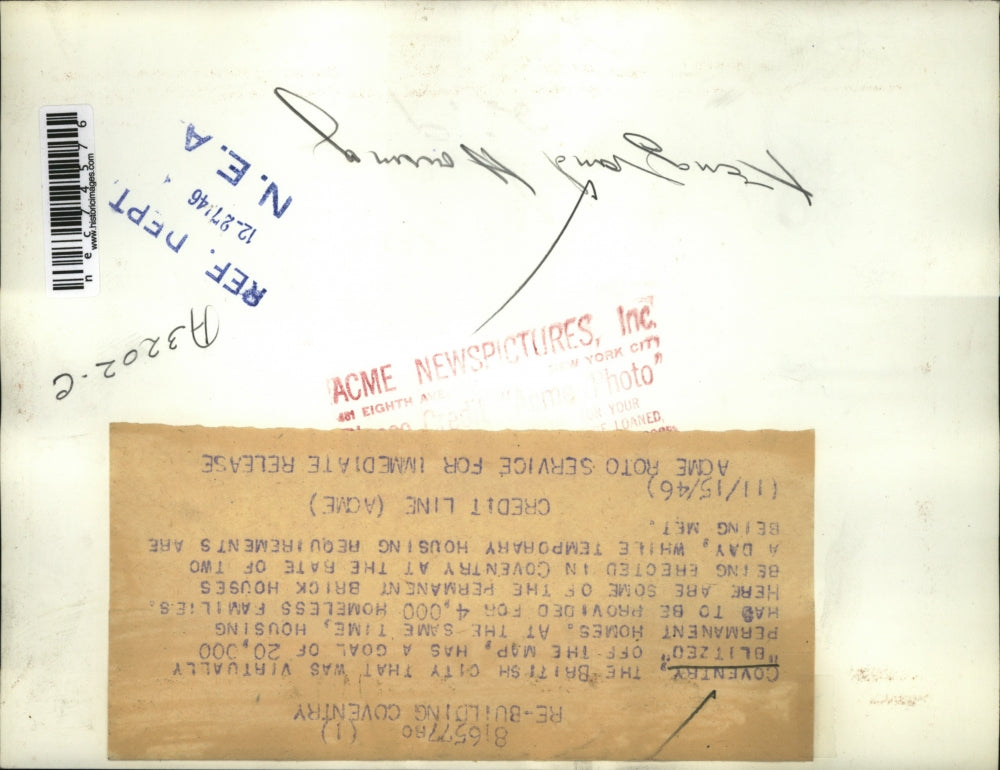 England Housing
N.E.A
12-27-46
REF. DEPT.
A3202-C
www.historicimages.com
ACME NEWSPICTURES, Inc.
461 EIGHTH AVE NEW YORK CITY
Credit "Acme Photo"
YOUR
LOANED,
81657780 (1)
RE-BUILDING COVENTRY
COVENTRY, THE BRITISH CITY THAT WAS VIRTUALLY
"BLITZED" OFF THE MAP, HAS A GOAL OF 20,000
PERMANENT HOMES. AT THE SAME TIME, HOUSING
HAD TO BE PROVIDED FOR 4,000 HOMELESS FAMILIES.
HERE ARE SOME OF THE PERMANENT BRICK HOUSES
BEING ERECTED IN COVENTRY AT THE RATE OF TWO
A DAY, WHILE TEMPORARY HOUSING REQUIREMENTS ARE
BEING MET.
CREDIT LINE (ACME)
(11/15/46)
ACME ROTO SERVICE FOR IMMEDIATE RELEASE